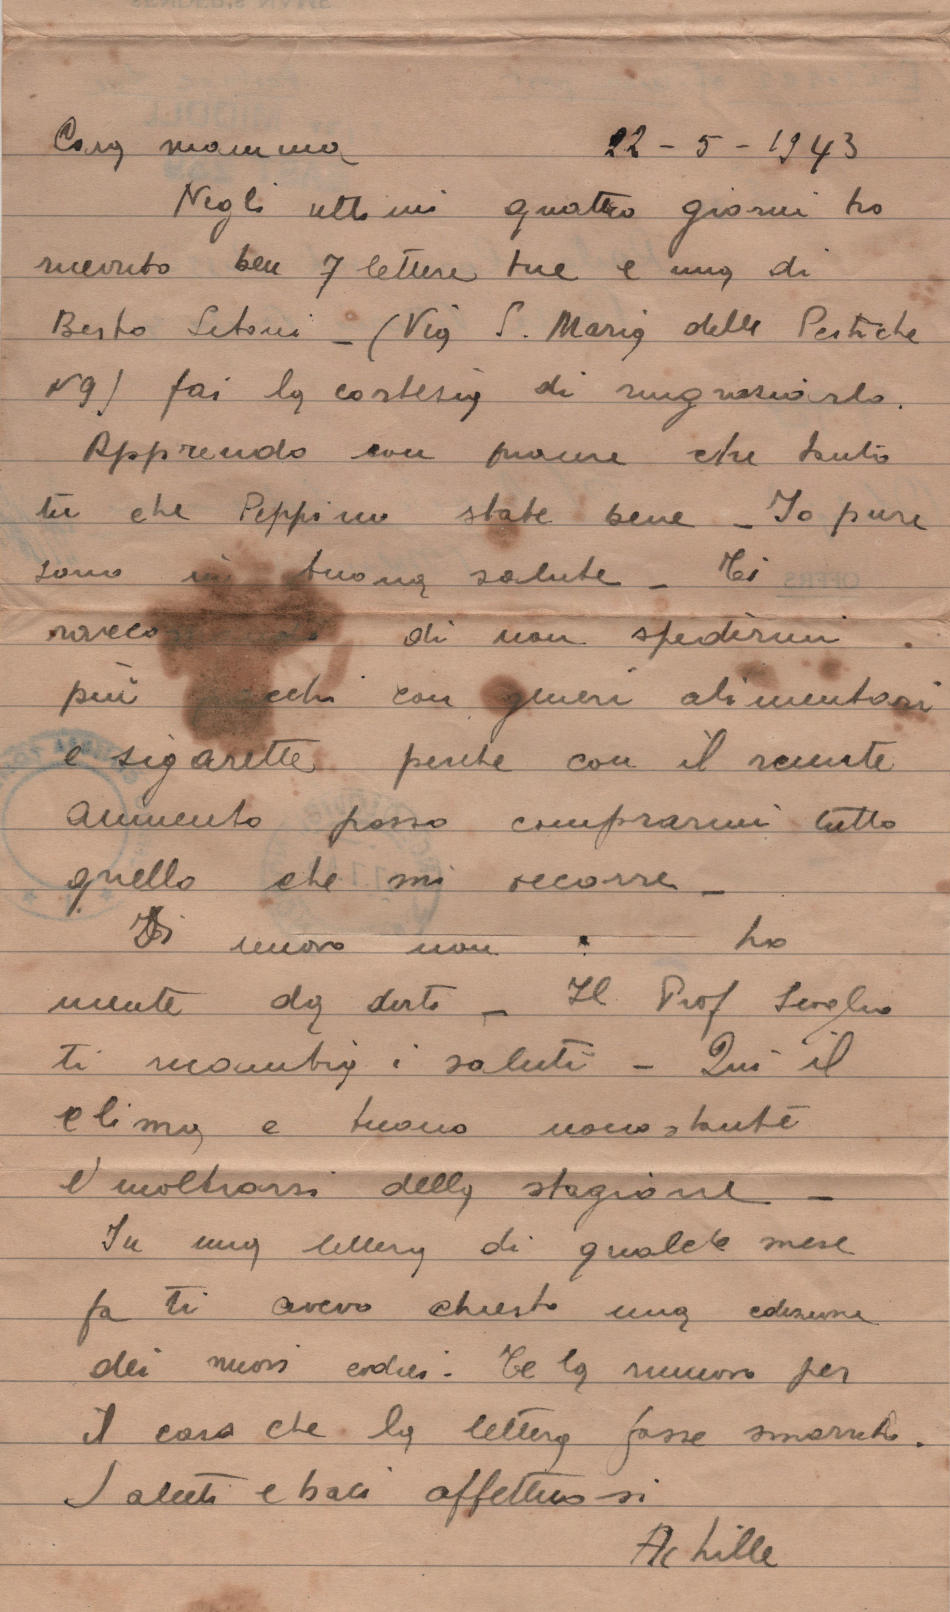 Cara mamma 22-5-1943
Negli ultimi quattro giorni ho
ricevuto ben 7 lettere tue e una di
Berto Setoni - (Via S. Maria delle Pertiche
N9) fai la cortesia di ringraziarlo.
Apprendo con piacere che tanto
tu che Peppino state bene - Io pure
sono in buona salute - Ti
di non spedirmi
più pacchi con generi alimentari
e sigarette perche con il recente
aumento posso comprarmi tutto
quello che mi occorre -
Di nuovo non ho
niente da dirti - Il Prof
ti ricambia i saluti - Qui il
clima e buono nonostante
l'inoltrarsi della stagione -
In una lettera di qualche mese
fa ti avevo chiesto una edizione
dei nuovi codici. Te la rinnovo per
il caso che la lettera fosse smarrita.
Saluti e baci affettuosi
Achille
OFFERS